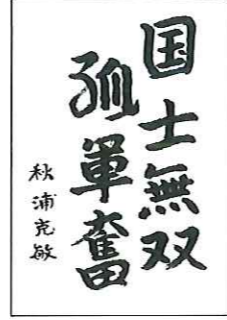 国士無双
孤軍奮
秋浦克敏